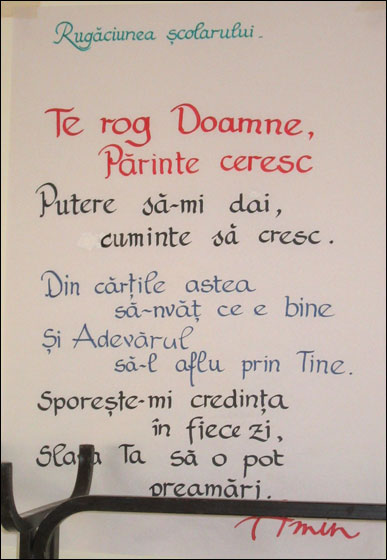 Rugăciunea școlarului.
Te rog Doamne,
Părinte ceresc
Putere să-mi dai,
cuminte să cresc.
Din cărțile astea
să-nvăț ce e bine
Și Adevărul
să-l aflu prin Tine.
Sporește-mi credința
în fiece zi,
Slava Ta să o pot
preamări.
Amin